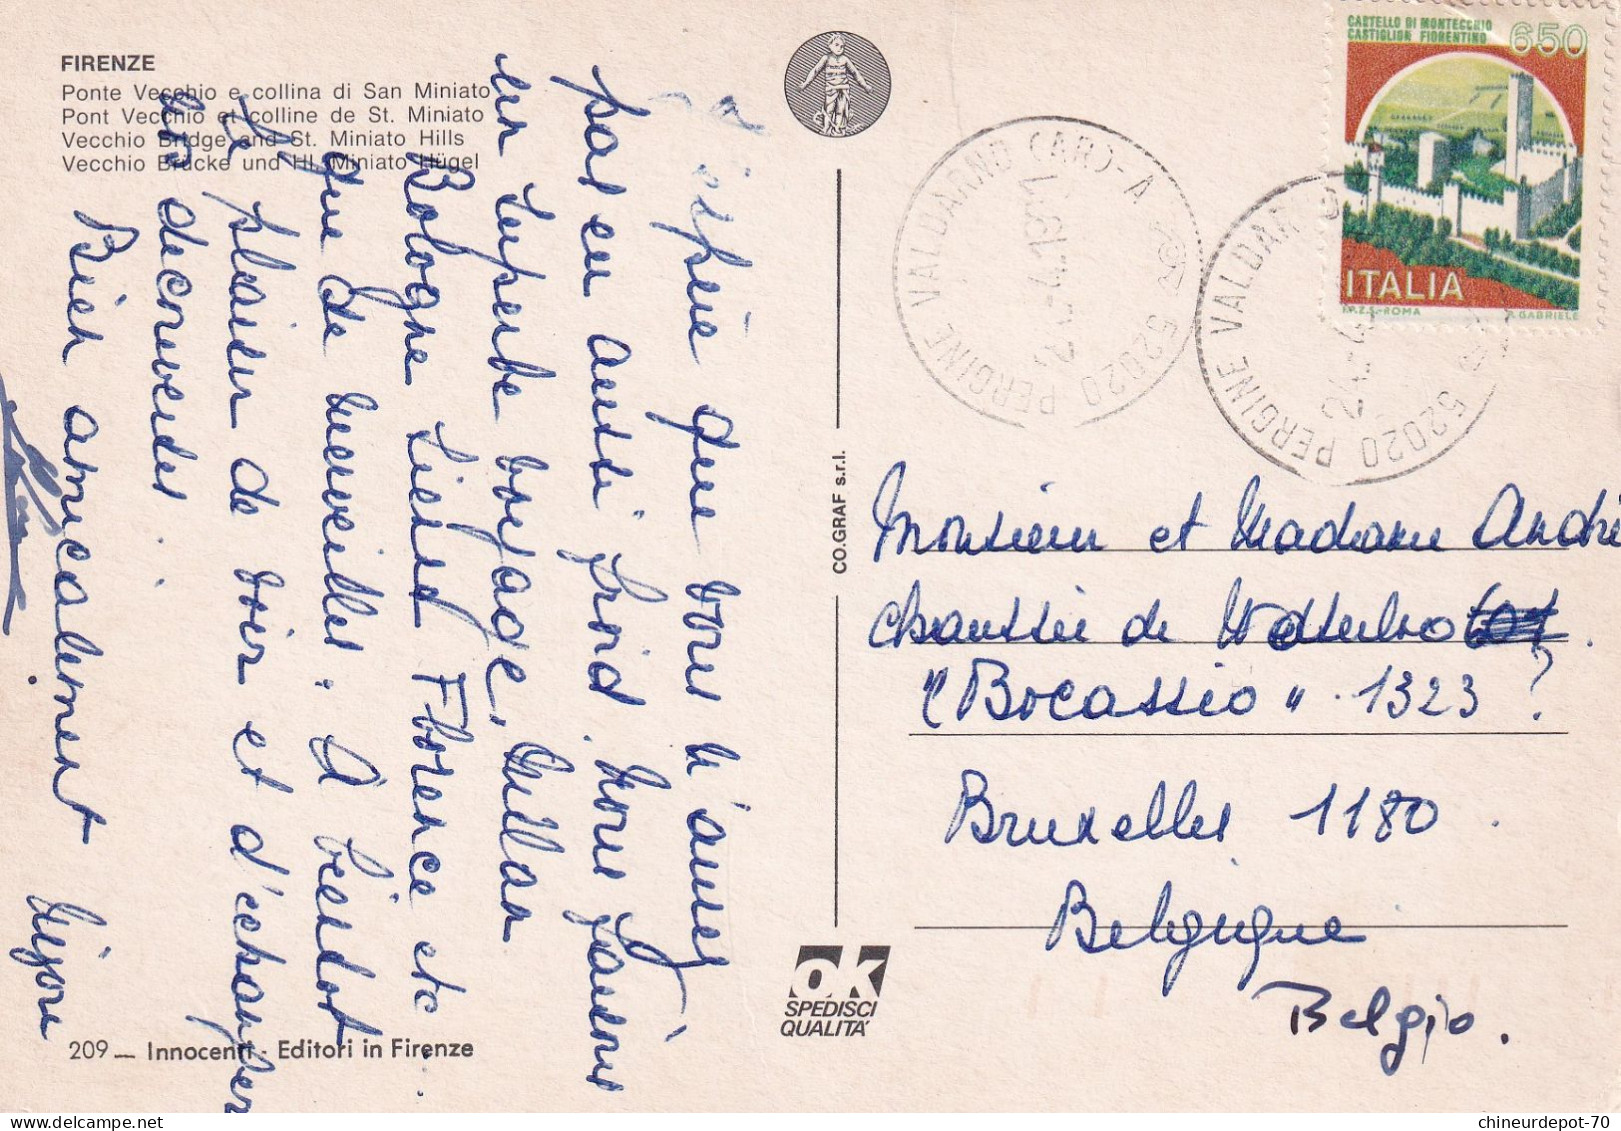 FIRENZE
Ponte Vecchio e collina di San Miniato
Pont Vecchio et colline de St. Miniato
Vecchio Bridge and St. Miniato Hills
Vecchio Brücke und Hl. Miniato Hügel
J'espère que vous n'avez
pas eu aussi froid. nous faisons
un superbe voyage, Millan
Bologne Sienne Florence etc...
que de merveilles. A bientot
le plaisir de vous voir et d'échanger
les decouvertes.
Bien amicalement
209 — Innocenti - Editori in Firenze
CO.GRAF s.r.l.
OK
SPEDISCI
QUALITA'
CASTELLO DI MONTECCHIO
CASTIGLION FIORENTINO
650
ITALIA
I.P.Z.S.-ROMA
52020 PERGINE VALDARNO (AR)-A
52020 PERGINE VALDARNO
Monsieur et Madame André
chaussée de Waterloo
"Bocassio" . 1323 ?
Bruxelles 1180 .
Belgique
Belgio.
chineurdepot-70